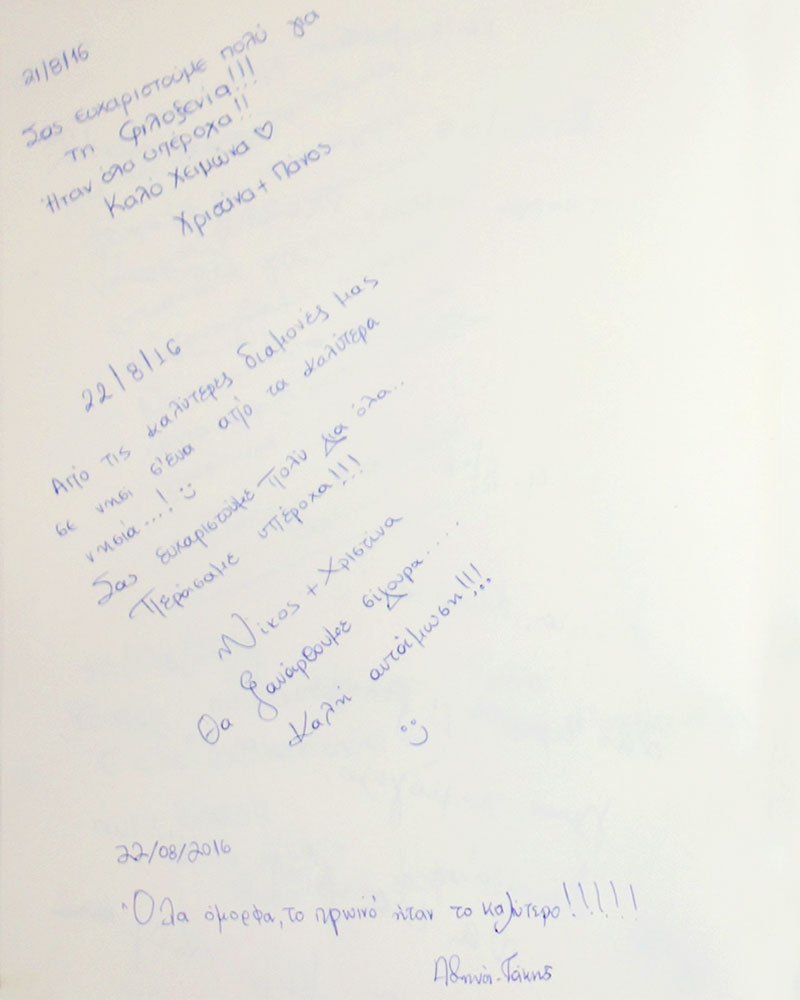 21/8/16
Σας ευχαριστούμε πολύ για
τη φιλοξενία!!!
Ήταν όλα υπέροχα!!
Καλό χειμώνα ♡
Χριστίνα + Πάνος
22/8/16
Από τις καλύτερες διαμονές μας
σε νησί σ'ένα από τα καλύτερα
νησιά...! :)
Σας ευχαριστούμε πολύ για όλα..
Περάσαμε υπέροχα!!!
Νίκος + Χριστίνα
Θα ξανάρθουμε σίγουρα.....
Καλή αντάμωση!!!
:)
22/08/2016
Όλα όμορφα, το πρωινό ήταν το καλύτερο!!!!!
Αθηνά-Τάκης